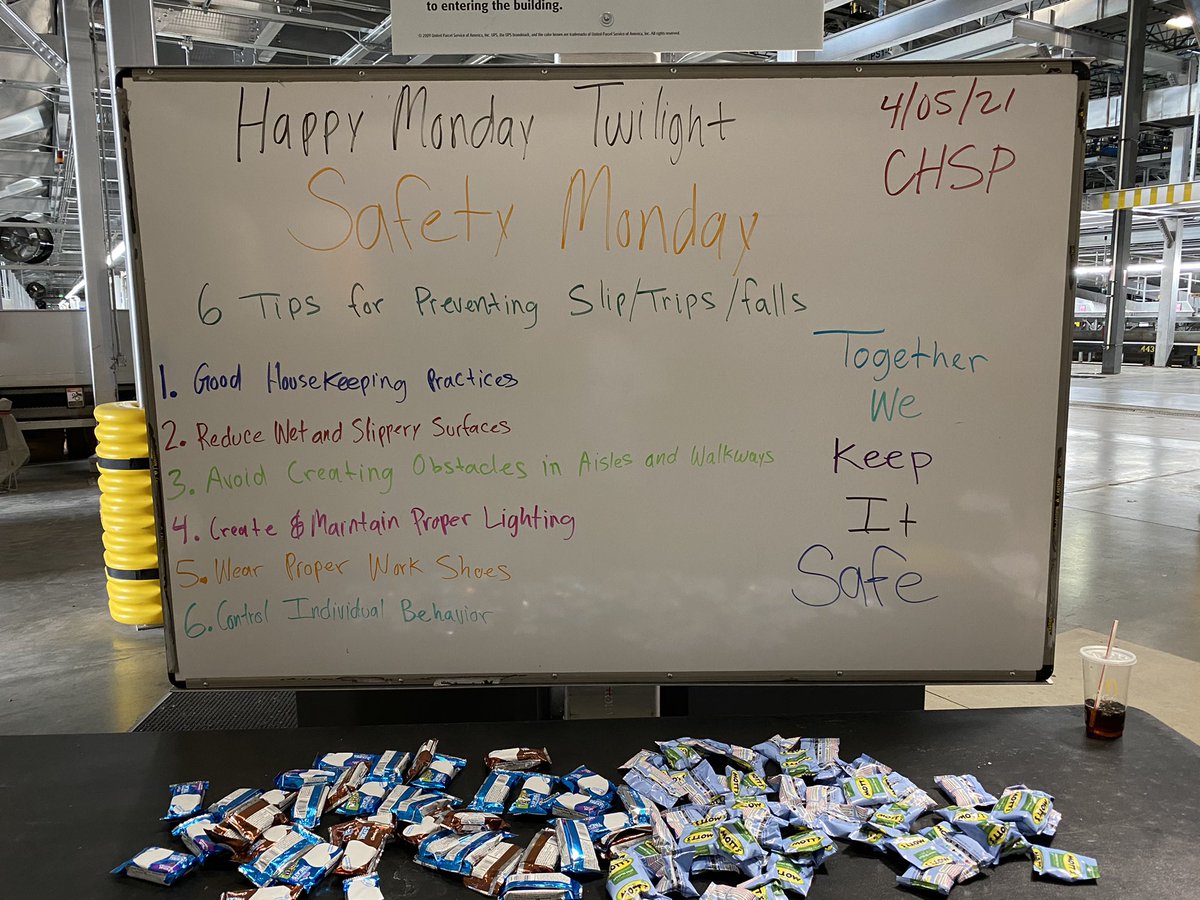 to entering the building.
© 2009 United Parcel Service of America, Inc. UPS, the UPS brandmark, and the color brown are trademarks of United Parcel Service of America, Inc. All rights reserved.
Happy Monday Twilight
4/05/21
CHSP
Safety Monday
6 Tips for Preventing Slip/Trips/falls
1. Good Housekeeping Practices
2. Reduce Wet and Slippery Surfaces
3. Avoid Creating Obstacles in Aisles and Walkways
4. Create & Maintain Proper Lighting
5. Wear Proper Work Shoes
6. Control Individual Behavior
Together
We
Keep
It
Safe
443
MOTT'S
MOTT'S
MOTT'S
MOTT'S
MOTT'S
MOTT'S